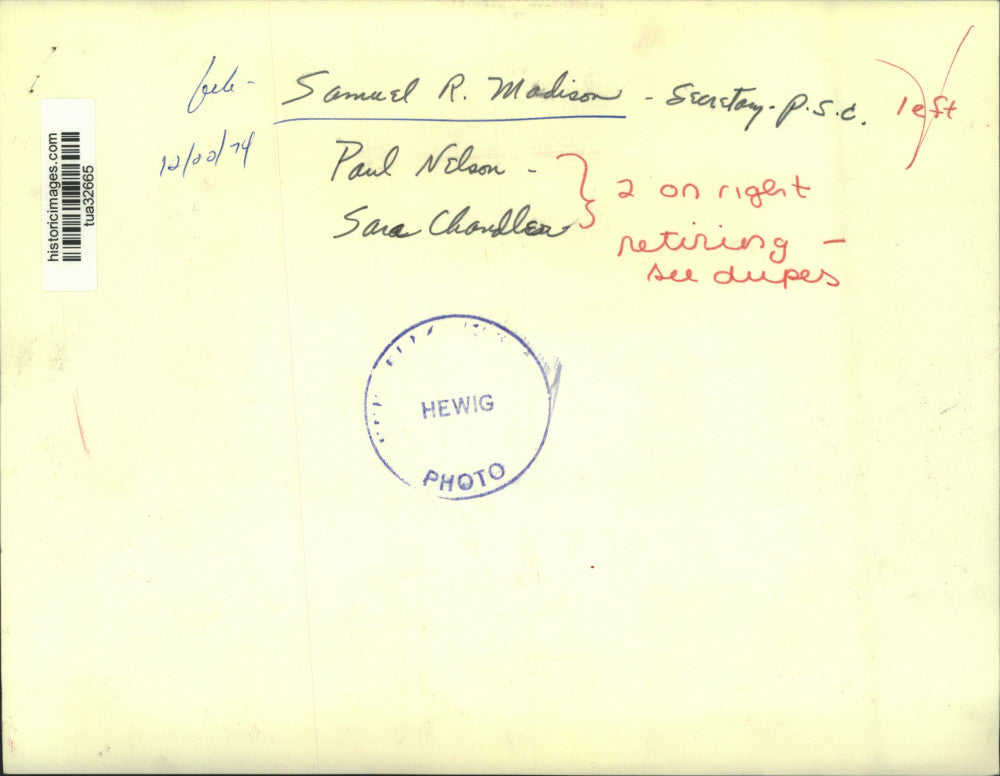 Samuel R. Madison - Secretary - P.S.C. left
12/20/74
Paul Nelson -
Sara Chandler
2 on right
retiring -
see dupes
historicimages.com
tua32665
HEWIG
PHOTO